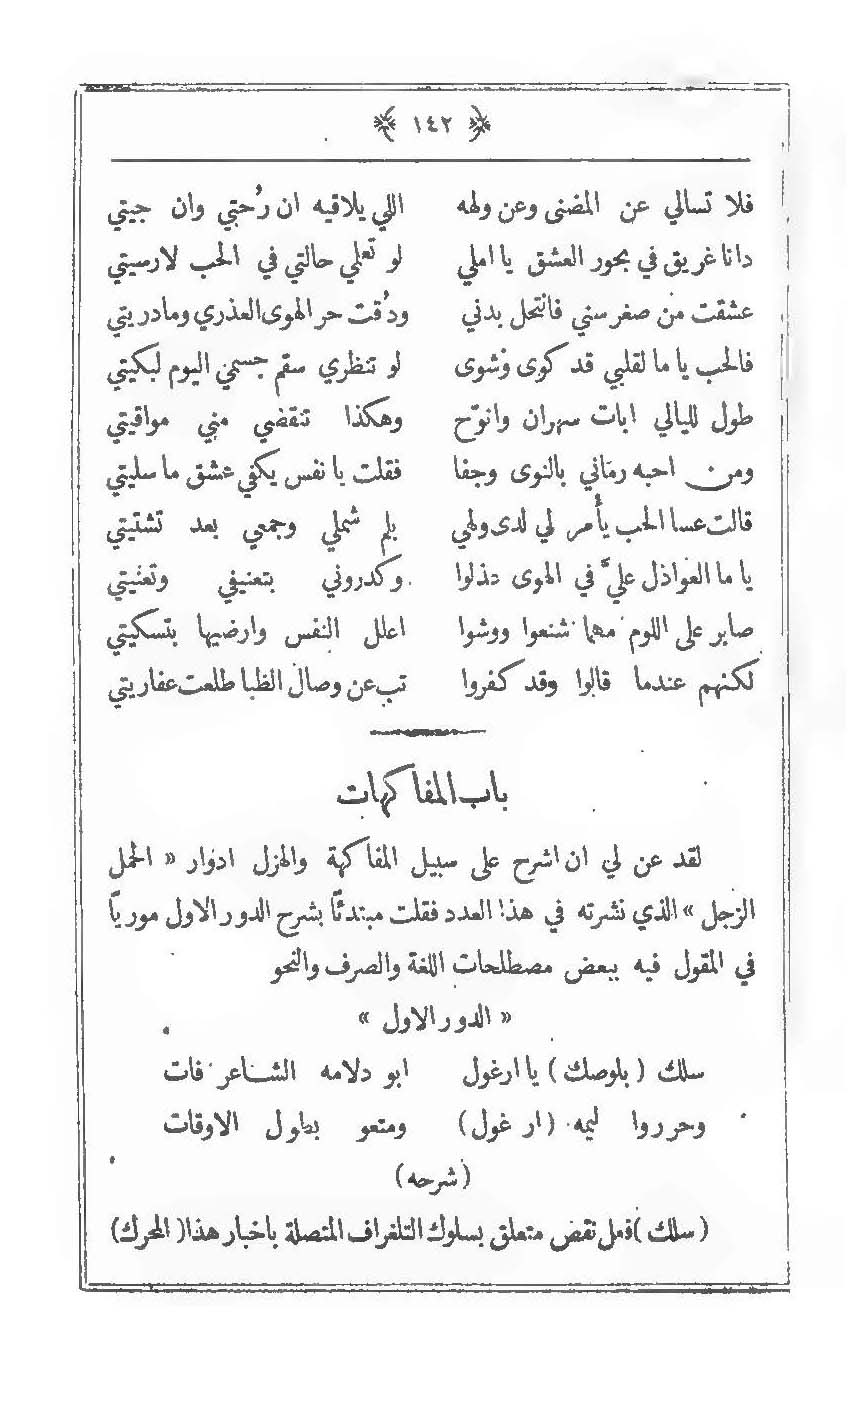 ١٤٢
فلا تسالي عن المضنى وعن ولهه اللي يلاقيه ان رُحتي وان جيتي
دانا غريق في بحور العشق يا املي لو تعلمي حالتي في الحب لارسيتي
عشقت من صغر سني فانتحل بدني وذُقت حر الهوى العذري ومادريتي
فالحب يا ما لقلبي قد كوى وشوى لو تنظري سقم جسمي اليوم لبكيتي
طول الليالي ابات سهران وانوّح وهكذا تنقضي مني مواقيتي
ومن احبه رماني بالنوى وجفا فقلت يا نفس يكفي عشق ما سليتي
قالت عسا الحب يأمر لي لدى ولهي يلم شملي وجمعي بعد تشتيتي
يا ما العواذل عليّ في الهوى عذلوا وكدروني بتعنيفي وتعنيتي
صابر على اللوم مهما شنعوا ووشوا اعلل النفس وارضيها بتسكيتي
لكنهم عندما قالوا وقد كفروا تب عن وصال الظبا طلعت عفاريتي
باب المفاكهات
لقد عن لي ان اشرح على سبيل المفاكهة والهزل ادوار « الحمل
الزجل » الذي نشرته في هذا العدد فقلت مبتدئًا بشرح الدور الاول موريًّا
في المقول فيه ببعض مصطلحات اللغة والصرف والنحو
« الدور الاول »
سلك ( بلوصك ) يا ارغول ابو دلامه الشاعر فات
وحرروا ليمه (ار غول) ومتعو بطول الاوقات
(شرحه)
( سلك ) فعل نقض متعلق بسلوك التلغراف المتصلة باخبار هذا ( المحرك )